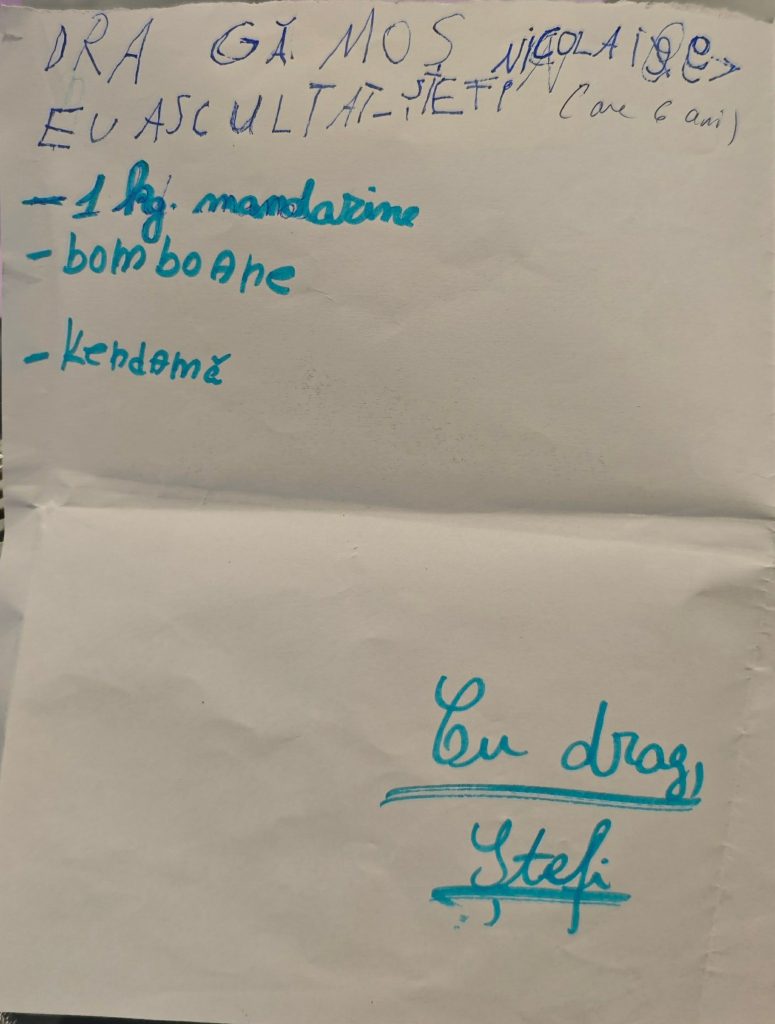 DRA GĂ MOȘ NICOLAI
EU ASCULTAT - ȘTEFI (are 6 ani)
- 1 kg. mandarine
- bomboane
- Kendamă
Cu drag,
Ștefi